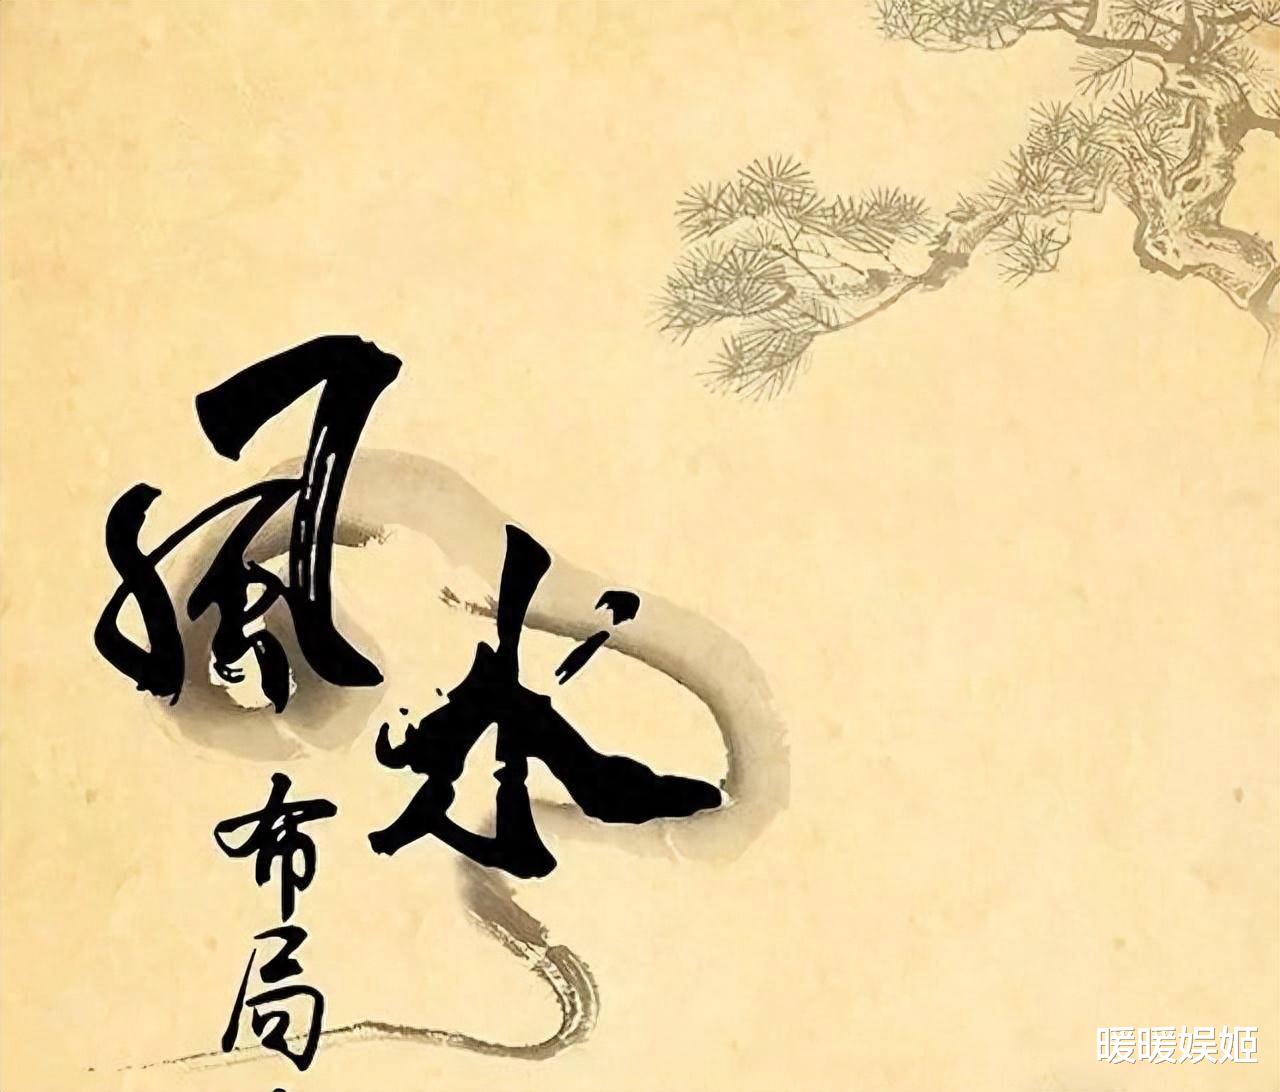 風水
布局
暖暖娱姬